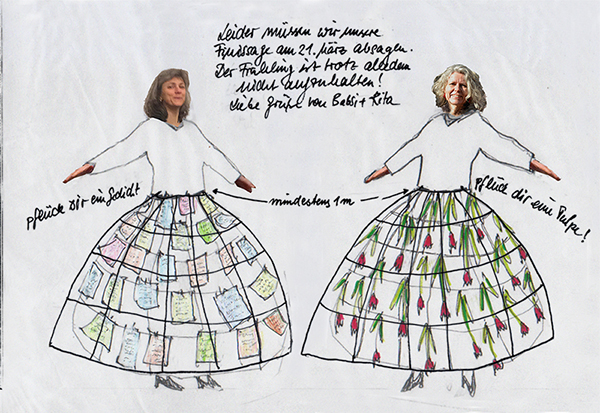 Leider müssen wir unsere
Finissage am 21. März absagen.
Der Frühling ist trotz alledem
nicht aufzuhalten!
Liebe Grüße von Babsi + Rita
pflück dir ein Gedicht
mindestens 1m
pflück dir eine Tulpe!